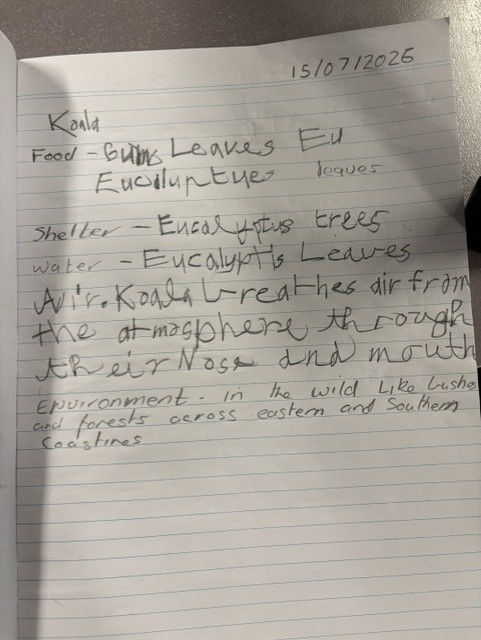 15/07/2026
Koala
Food - Gums Leaves Eu
Eucaluptues leaves
Shelter - Eucalyptus trees
Water - Eucalyptis Leaves
Air. Koala breathes air from
the atmosphere through
their Nose and mouth
Environment. in the wild Like bushe
and forests across eastern and Southern
Coastines